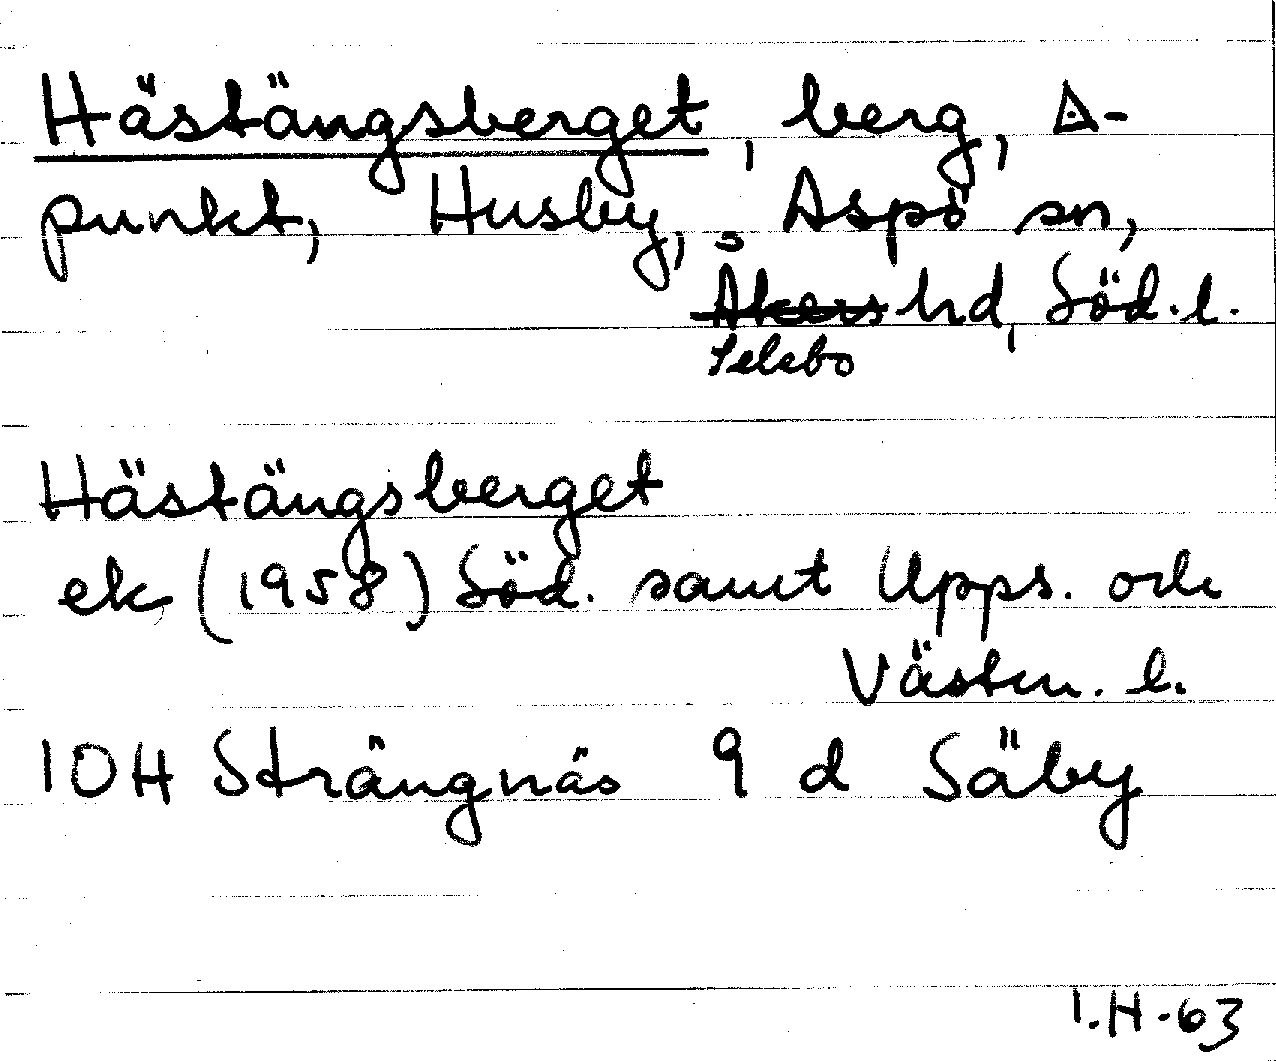 Hästängsberget, berg, △-
punkt, Husby, Aspö sn,
Åkers hd, Söd. l.
Selebo
Hästängsberget
ek (1958) Söd. samt Upps. och
Västm. l.
10H Strängnäs 9 d Säby
I.H-63